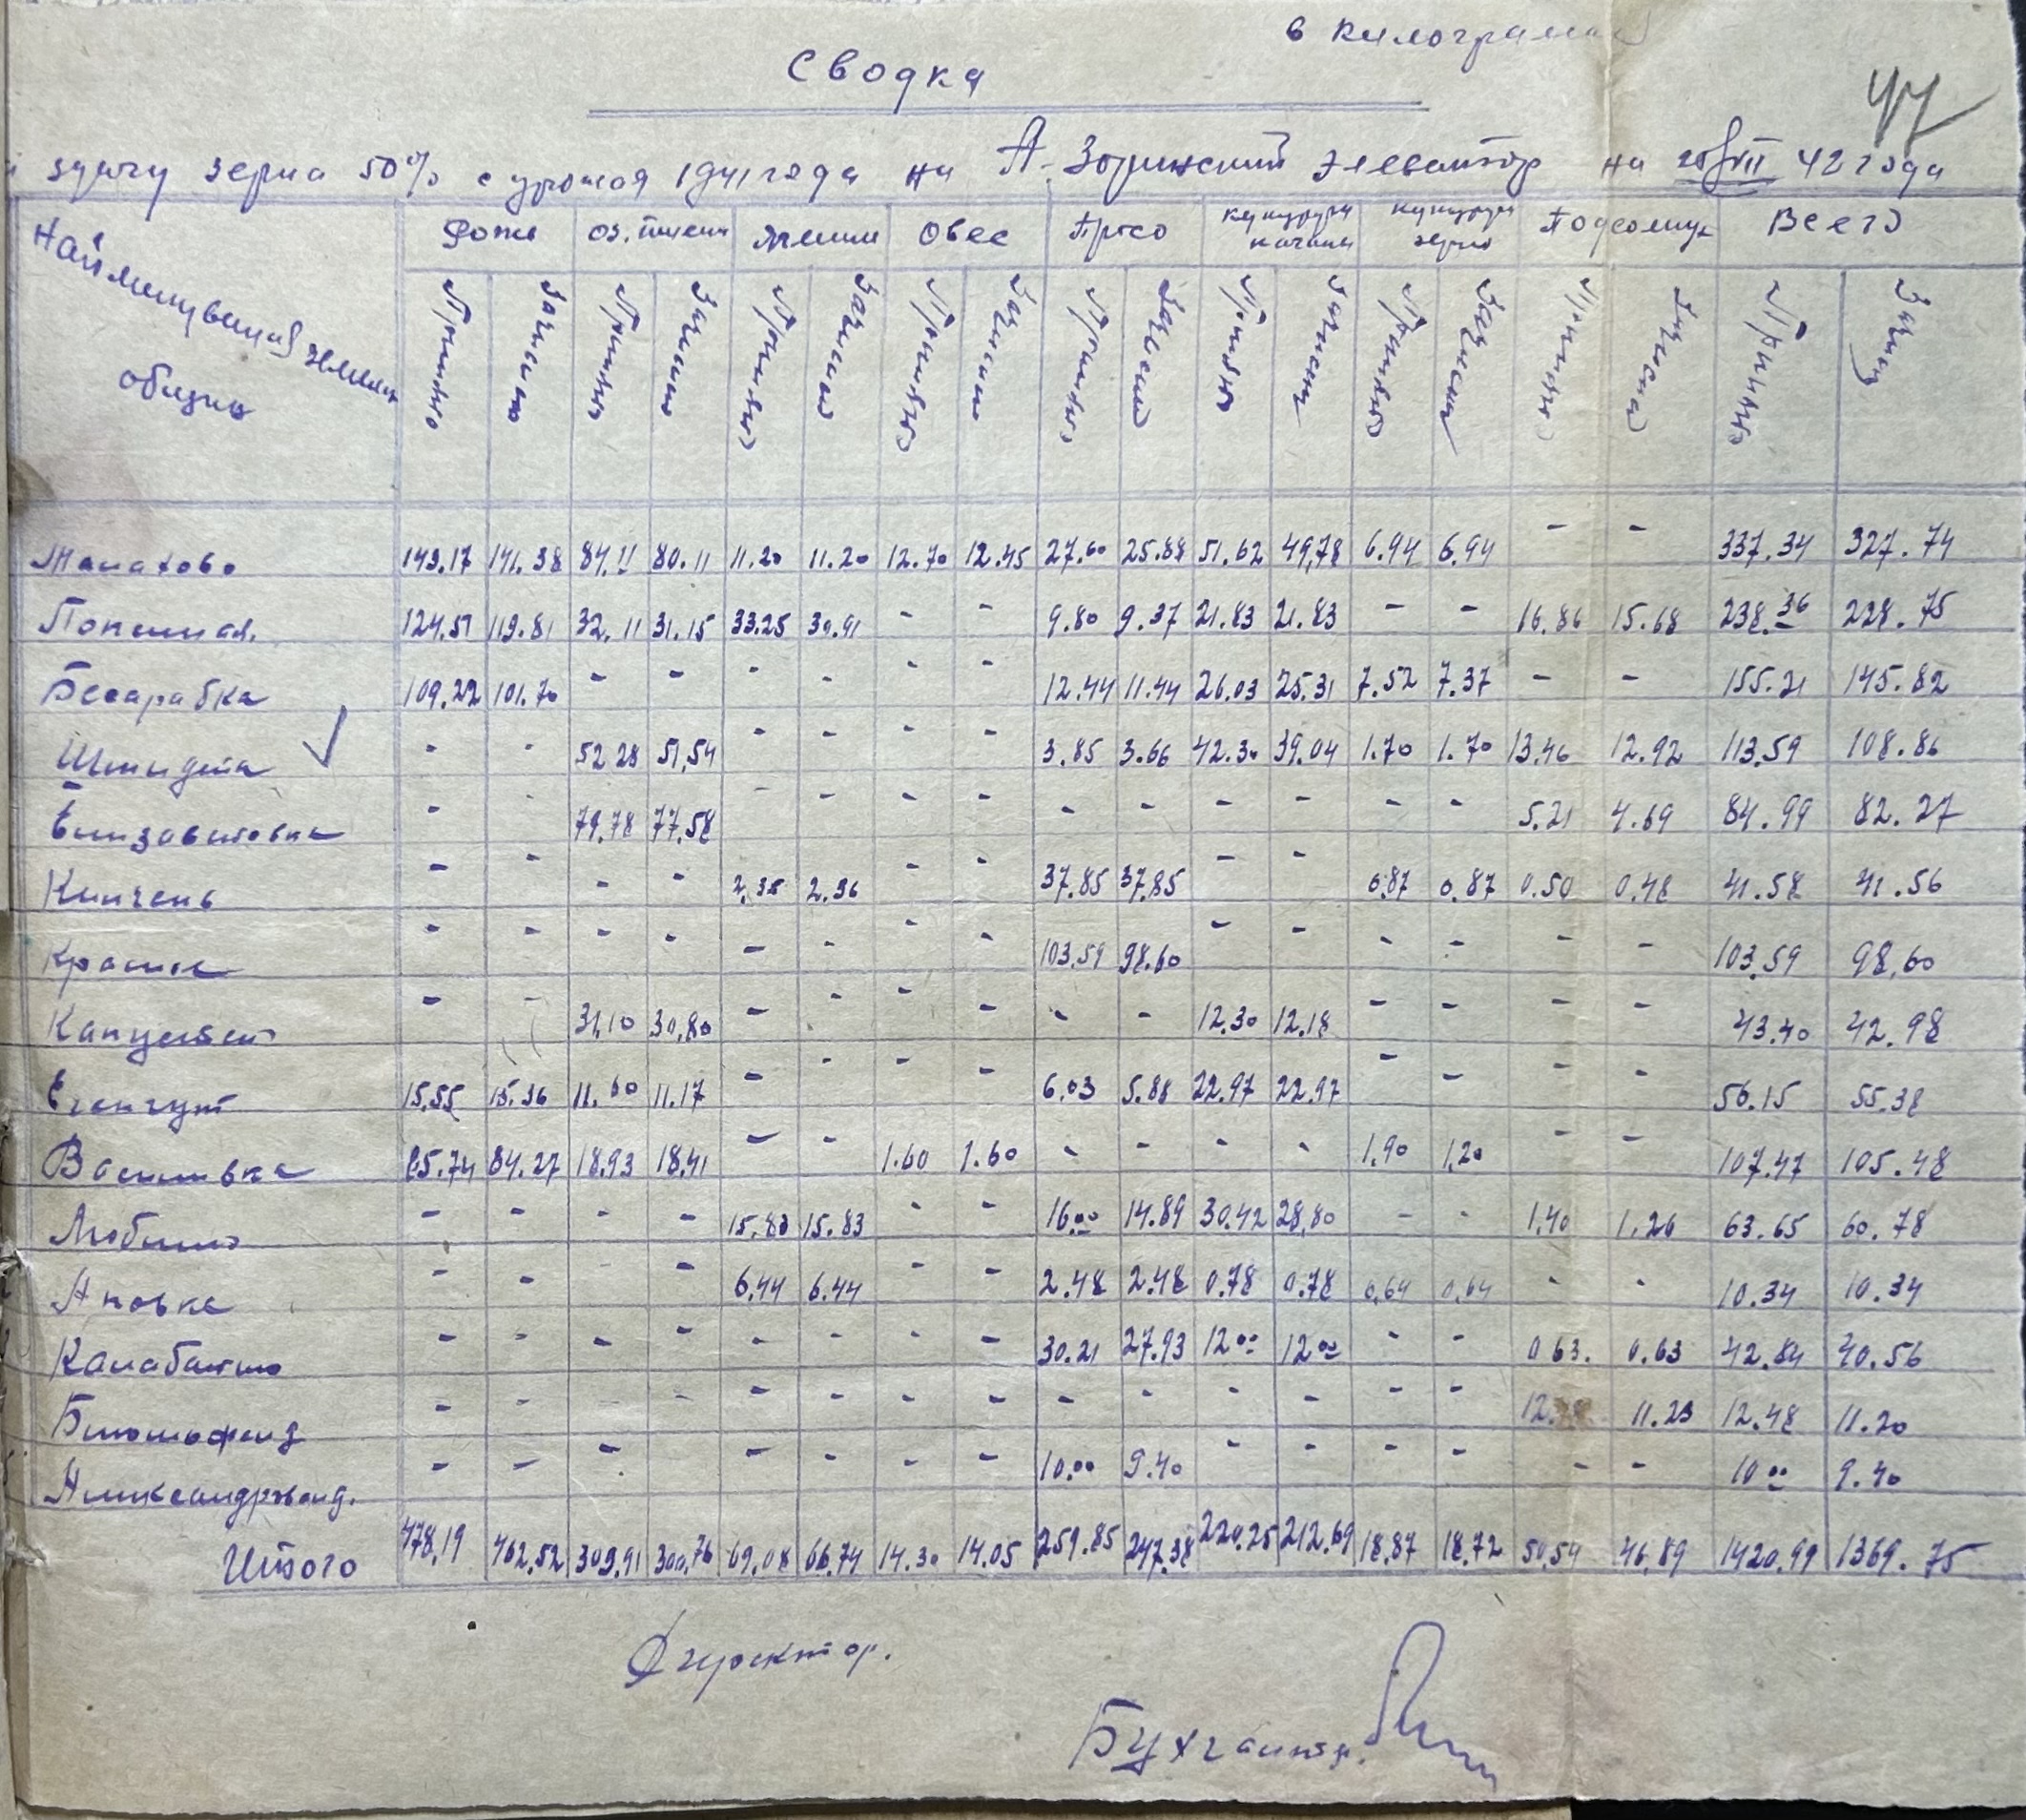 в килограмах
Сводка
47
здачу зерна 50% с урожая 1941 года на А. Зоринский элеватор на 20/VII 42 года
Рожь оз. пшен ячмень Овес Просо кукуруза качаны кукуруза зерно Подсолнух Всего
общины
Принято Зачисл Принято Зачисл Принято Зачисл Принято Зачисл Принято Зачисл Принято Зачисл Принято Зачисл Принято Зачисл Принято Зачисл
Малахово 143.17 141.38 84.11 80.11 11.20 11.20 12.70 12.45 27.60 25.88 51.62 49,78 6.94 6.94 - - 337.34 327.74
124.51 119.81 32.11 31.15 33.25 30.91 - - 9.80 9.37 21.83 21.83 - - 16.86 15.68 238.36 228.75
Бесарабка 109.22 101.70 - - - - - - 12.44 11.44 26.03 25.31 7.52 7.37 - - 155.21 145.82
Шмидта ✓ - - 52 28 51,54 - - - - 3.85 3.66 42.30 39.04 1.70 1.70 13.46 12.92 113.59 108.86
Елизаветовка - - 79.78 77.58 - - - - - - - - - - 5.21 4.69 84.99 82.27
- - - - 2.36 2.36 - - 37.85 37.85 - - 0.87 0.87 0.50 0.48 41.58 41.56
- - - - - - - - 103.59 98.60 - - - - - - 103.59 98,60
- - 31,10 30,80 - - - - - - 12.30 12.18 - - - - 43.40 42.98
15,55 15.36 11.60 11.17 - - - - 6.03 5.88 22.97 22.97 - - - - 56.15 55.38
Василивка 85.74 84.27 18.93 18.41 - - 1.60 1.60 - - - - 1.20 1,20 - - 107.47 105.48
Любино - - - - 15.83 15.83 - - 16.00 14.89 30.42 28,80 - - 1.40 1.26 63.65 60.78
Ановка - - - - 6.44 6.44 - - 2.48 2.48 0.78 0.78 0,64 0,64 - - 10.34 10.34
- - - - - - - - 30.21 27.93 12 00 12 00 - - 0 63. 0.63 42.84 40.56
- - - - - - - - - - - - - - 11.23 12.48 11.20
Александрфельд. - - - - - - - - 10.00 9.40 - - - - - - 10 00 9.40
Итого 478,19 462.52 309.91 300,76 69.08 66.74 14.30 14.05 259.85 247.38 220.25 212.69 18.87 18.72 50,54 46,89 1420.99 1369.75
Директор.
Бухгалтер.